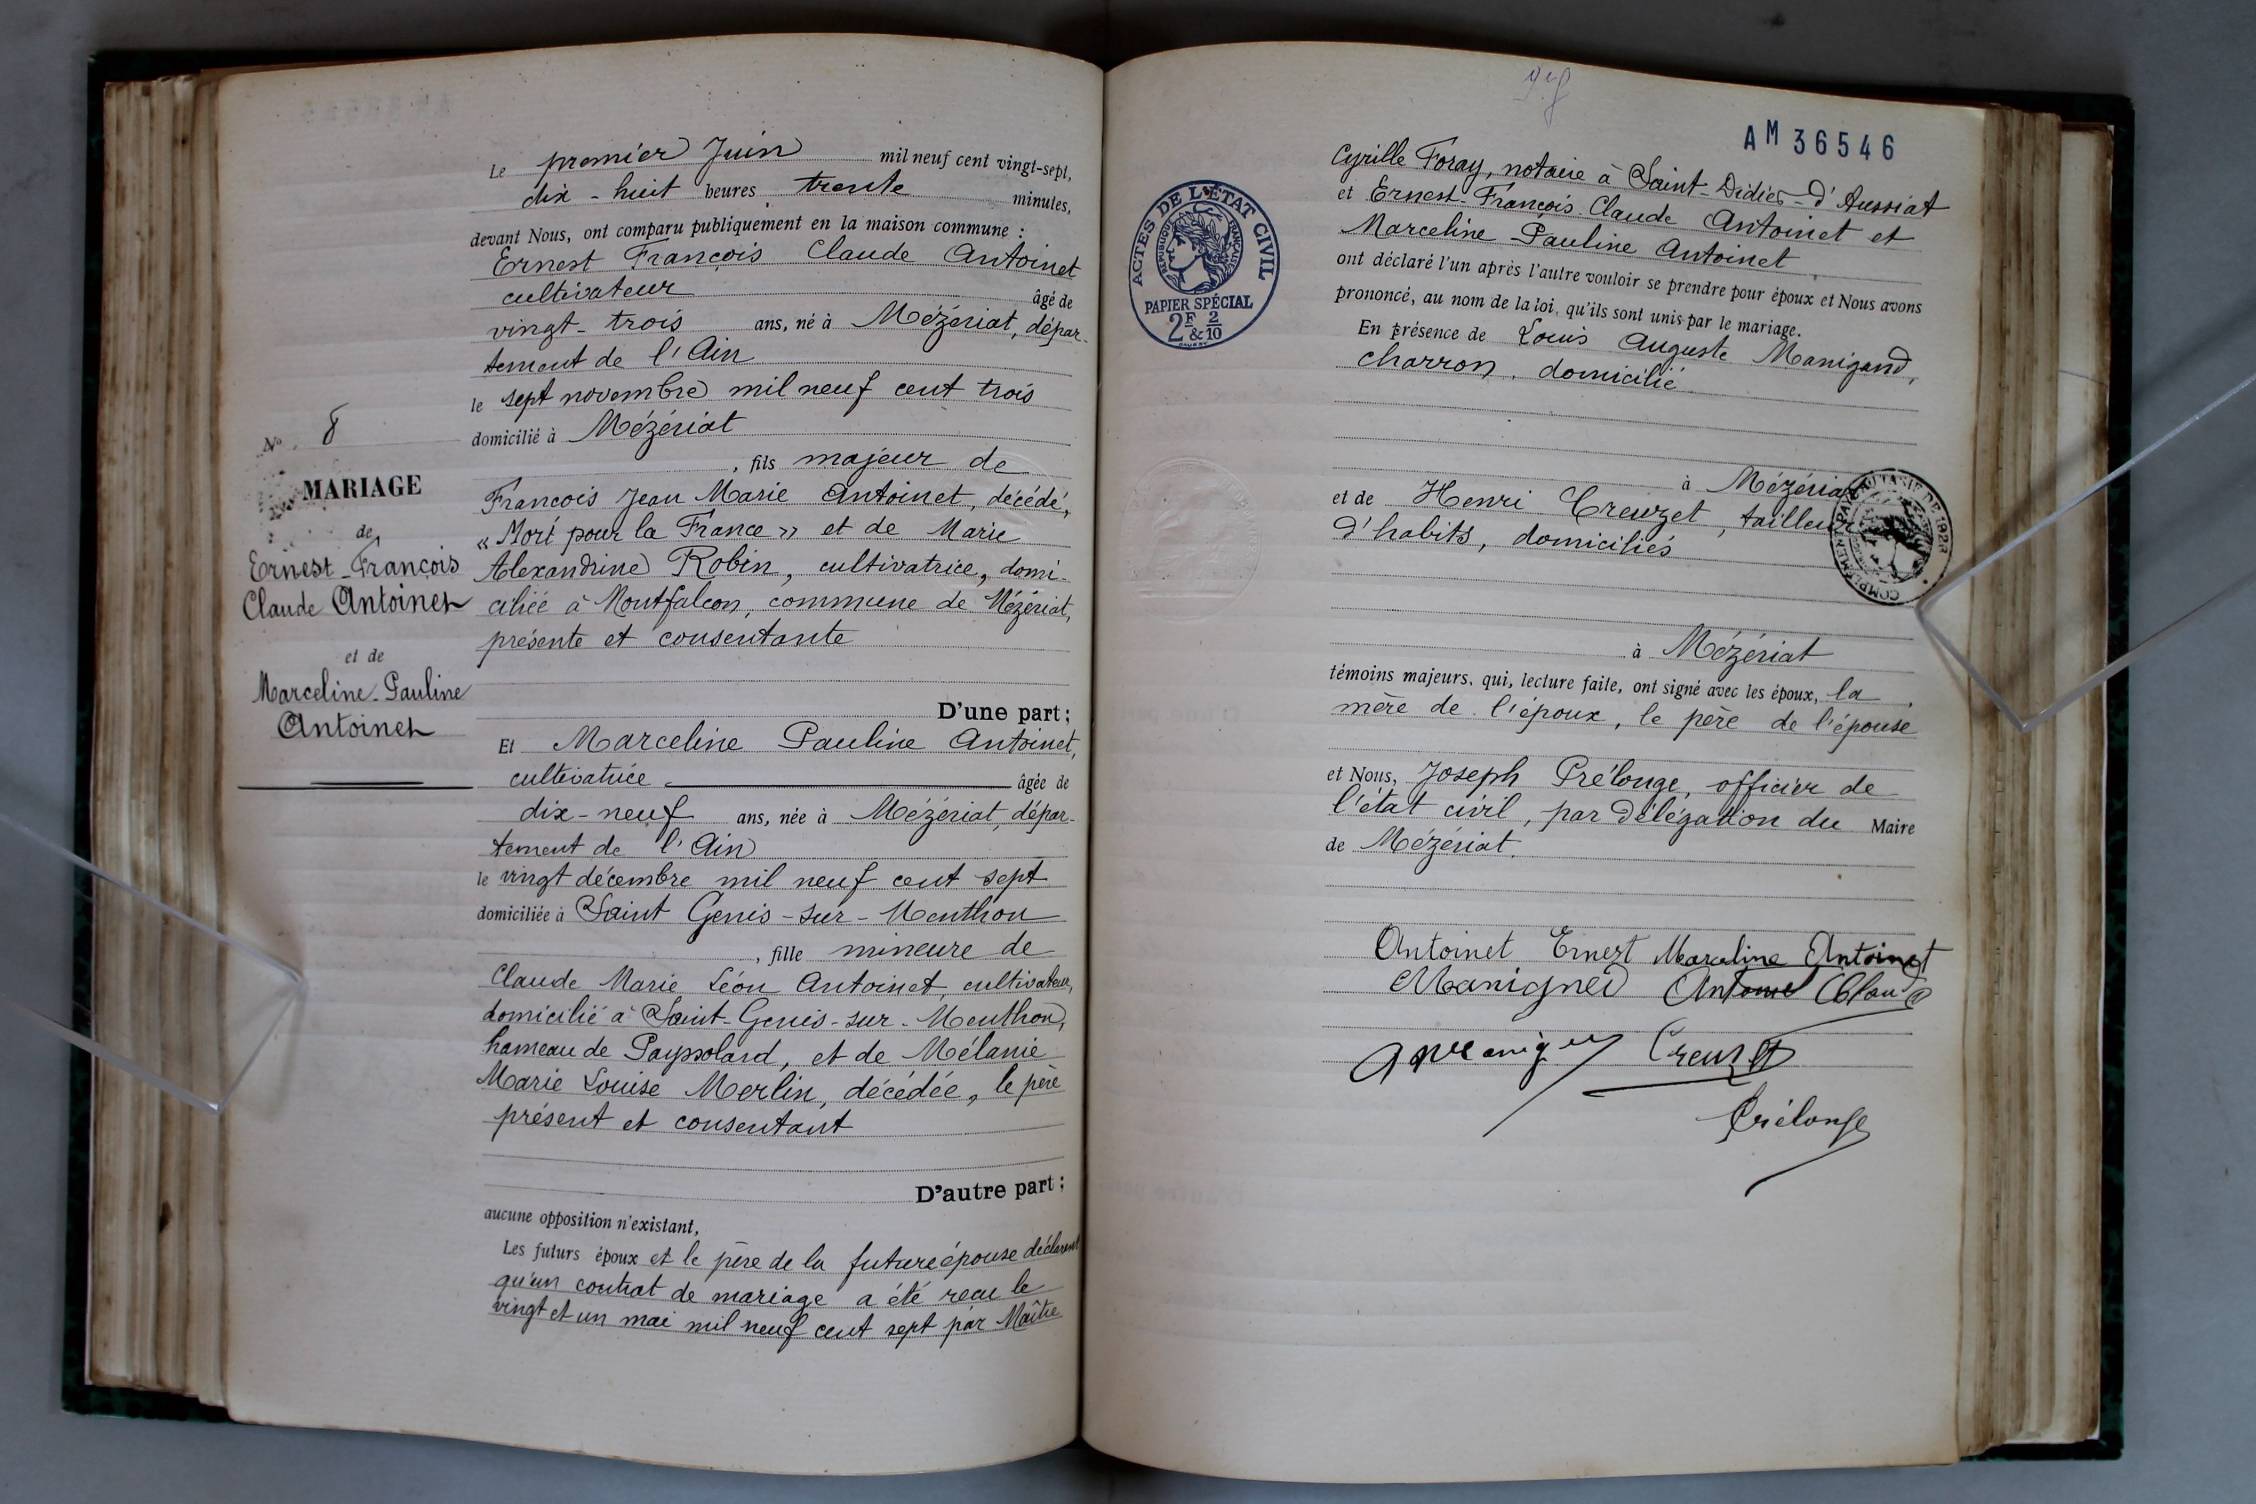 N° 8
MARIAGE
de
Ernest-François
Claude Antoinet
et de
Marceline-Pauline
Antoinet
Le premier Juin mil neuf cent vingt-sept,
dix-huit heures trente minutes,
devant Nous, ont comparu publiquement en la maison commune :
Ernest François Claude Antoinet
cultivateur âgé de
vingt-trois ans, né à Mézériat, dépar-
tement de l'Ain
le sept novembre mil neuf cent trois
domicilié à Mézériat
, fils majeur de
François Jean Marie Antoinet, décédé,
« Mort pour la France » et de Marie
Alexandrine Robin, cultivatrice, domi-
ciliée à Montfalcon, commune de Mézériat,
présente et consentante
D'une part ;
Et Marceline Pauline Antoinet,
cultivatrice âgée de
dix-neuf ans, née à Mézériat, dépar-
tement de l'Ain
le vingt décembre mil neuf cent sept
domiciliée à Saint Genis-sur-Menthon
, fille mineure de
Claude Marie Léon Antoinet, cultivateur,
domicilié à Saint-Genis-sur-Menthon,
hameau de Payssolard, et de Mélanie
Marie Louise Merlin, décédée, le père
présent et consentant
D'autre part ;
aucune opposition n'existant,
Les futurs époux et le père de la future épouse déclarent
qu'un contrat de mariage a été recu le
vingt et un mai mil neuf cent sept par Maître
AM 36546
ACTES DE L'ÉTAT CIVIL
RÉPUBLIQUE FRANÇAISE
PAPIER SPÉCIAL
2F & 2/10
Cyrille Foray, notaire à Saint-Didier-d'Aussiat
et Ernest-François-Claude Antoinet et
Marceline Pauline Antoinet
ont déclaré l'un après l'autre vouloir se prendre pour époux et Nous avons
prononcé, au nom de la loi, qu'ils sont unis par le mariage.
En présence de Louis Auguste Manigand,
charron, domicilié
à Mézériat
et de Henri Creuzet, tailleur
d'habits, domiciliés
à Mézériat
témoins majeurs, qui, lecture faite, ont signé avec les époux, la
mère de l'époux, le père de l'épouse
et Nous, Joseph Prélonge, officier de
l'état civil, par délégation du Maire
de Mézériat.
Antoinet Ernest Marceline Antoinet
Creuzet
Prélonge